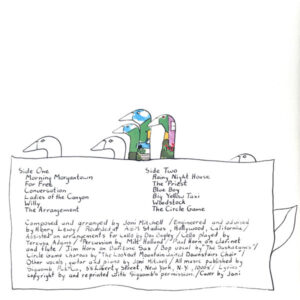 Side One
Morning Morgantown
For Free
Conversation
Ladies of the Canyon
Willy
The Arrangement
Side Two
Rainy Night House
The Priest
Blue Boy
Big Yellow Taxi
Woodstock
The Circle Game
Composed and arranged by Joni Mitchell / Engineered and advised
by Henry Lewy / Recorded at A&M Studios, Hollywood, California /
Assisted on arrangements for cello by Don Bagley / Cello played by
Teressa Adams / Percussion by Milt Holland / Paul Horn on clarinet
and flute / Jim Horn on baritone sax / Bop vocal by "The Saskatunes" /
Circle Game chorus by "The Lookout Mountain United Downstairs Choir" /
Other vocals, guitar and piano by Joni Mitchell / All music published by
Siquomb Pub. Corp., 55 Liberty Street, New York, N.Y. 10005 / Lyrics
copyright by and reprinted with Siquomb's permission / Cover by Joni